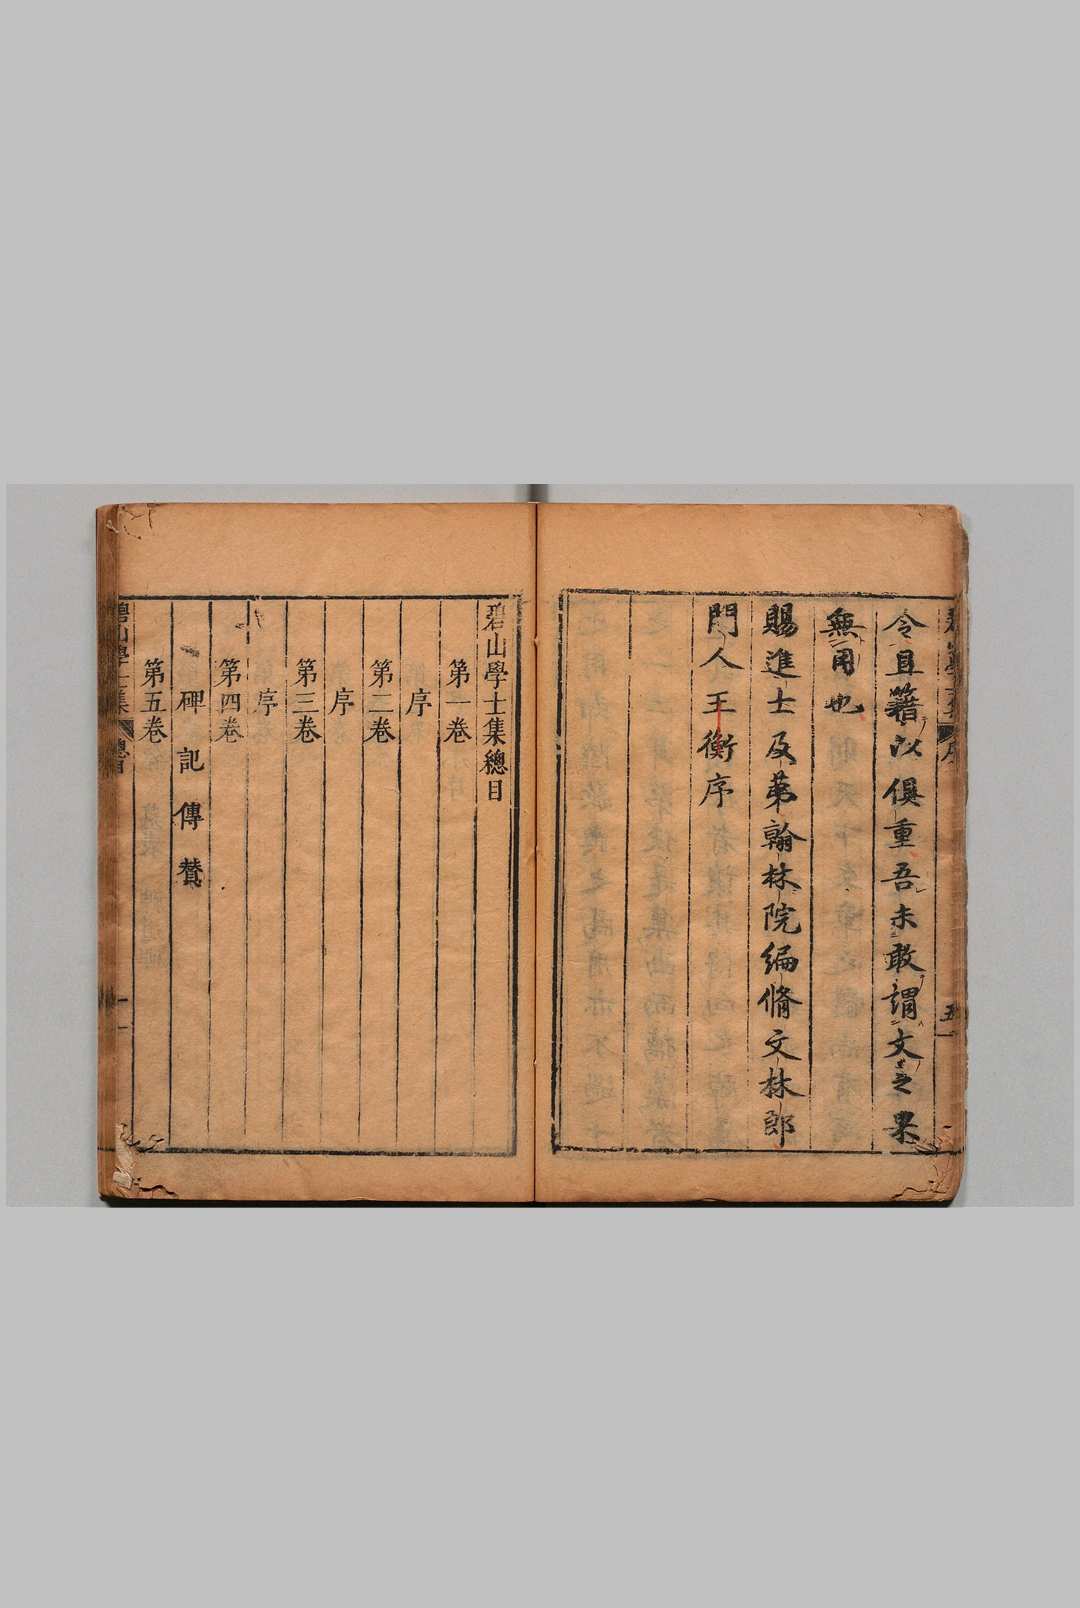 令且籍以俱重吾未敢謂文之果
無用也
賜進士及第翰林院編脩文林郎
門人王衡序
碧山學士集總目
第一卷
序
第二卷
序
第三卷
序
第四卷
碑記傳贊
第五卷